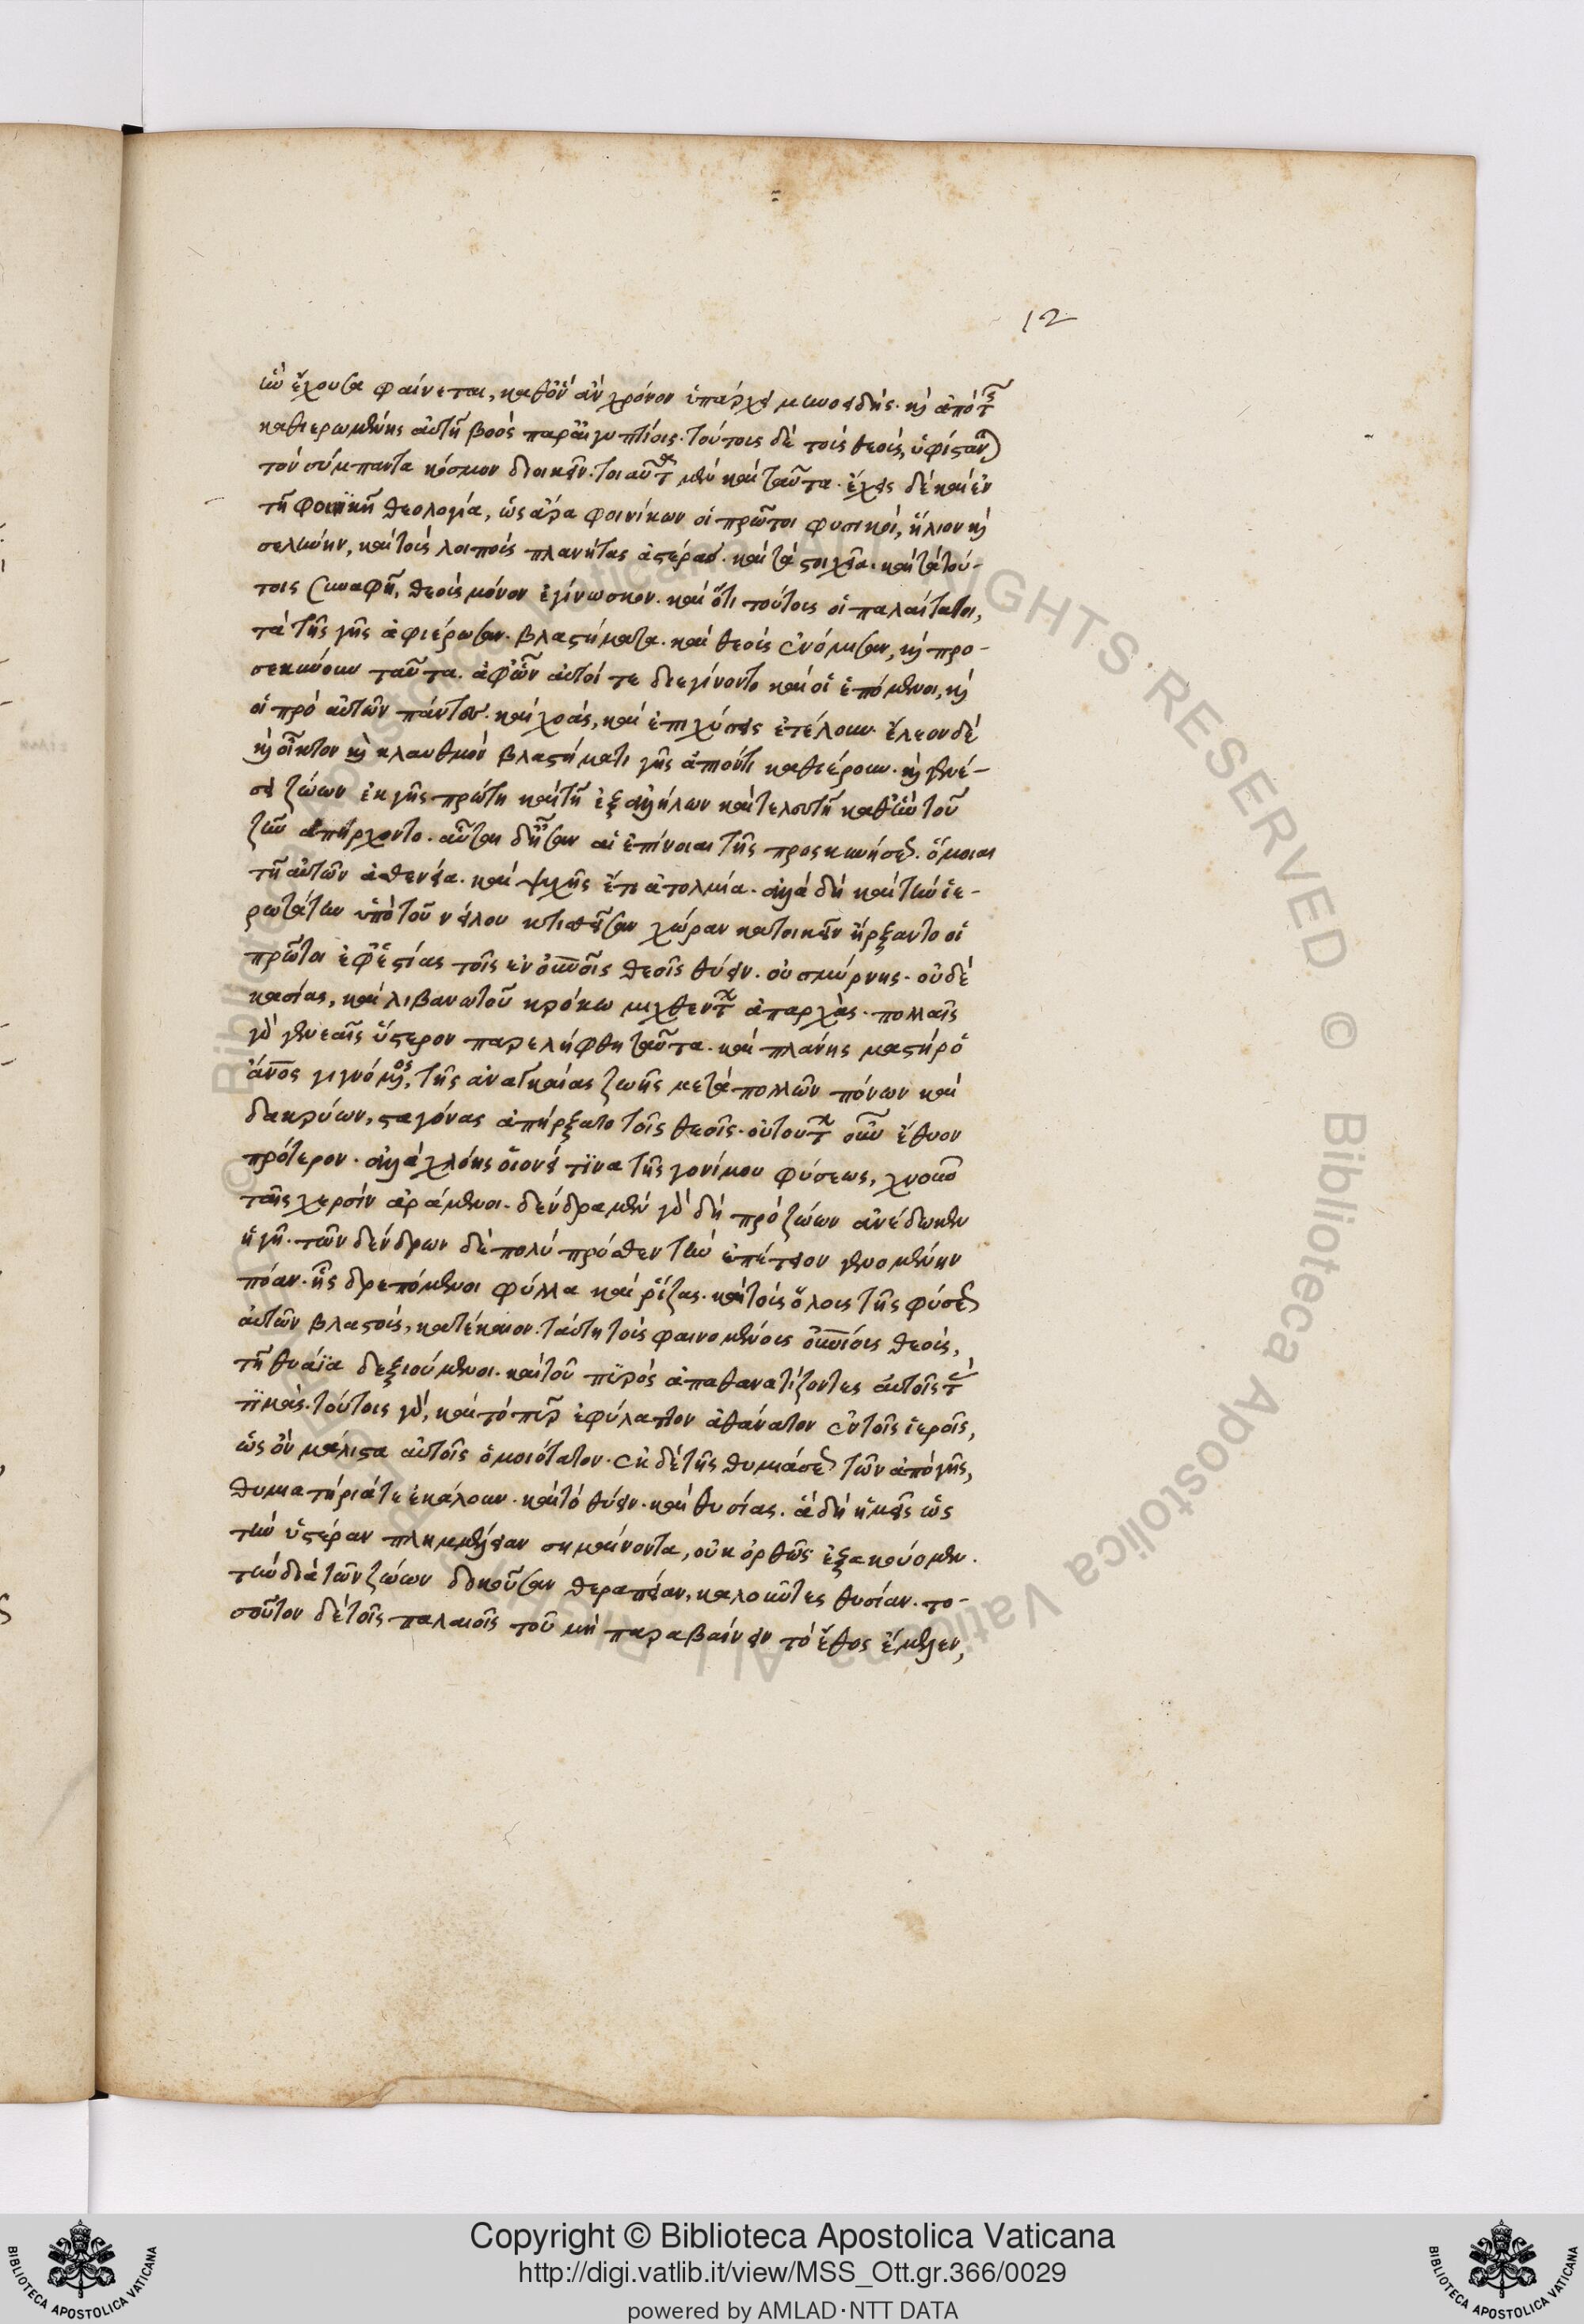 12
ἣν ἔχουσα φαίνεται, καθ' ὃν ἂν χρόνον ὑπάρχει μηνοειδής. καὶ ἀπὸ τῆς
καθιερωμένης αὐτῇ βοὸς παρ' αἰγυπτίοις. τούτους δὲ τοὺς θεοὺς, ὑφίστανται
τὸν σύμπαντα κόσμον διοικεῖν. τοιαῦτα μὲν καὶ ταῦτα. ἔχεις δὲ καὶ ἐν
τῇ φοινϊκῇ θεολογία, ὡς ἄρα φοινίκων οἱ πρῶτοι φυσικοὶ, ἥλιον καὶ
σελήνην, καὶ τοὺς λοιποὺς πλανήτας ἀστέρας. καὶ τὰ στοιχεῖα. καὶ τὰ τού-
τοις συναφῆ, θεοὺς μόνον ἐγίνωσκον. καὶ ὅτι τούτοις οἱ παλαίτατοι,
τὰ τῆς γῆς ἀφιέρωσαν βλαστήματα. καὶ θεοὺς ἐνόμισαν, καὶ προ-
σεκύνουν ταῦτα. ἀφ' ὧν αὐτοί τε διεγίνοντο καὶ οἱ ἑπόμενοι, καὶ
οἱ πρὸ αὐτῶν πάντες. καὶ χοὰς, καὶ ἐπιχύσεις ἐτέλουν. ἔλεον δὲ
καὶ οἶκτον καὶ κλαυθμὸν βλαστήματι γῆς ἀπιόντι καθιέρουν. καὶ γενέ-
σει ζώων ἐκ γῆς πρώτη καὶ τῇ ἐξ ἀλλήλων καὶ τελευτῇ καθ' ἣν τοῦ
ζῆν ἀπήρχοντο. αὗται δ' ἦσαν αἱ ἐπίνοιαι τῆς προσκυνήσεως. ὅμοιαι
τῇ αὐτῶν ἀσθενεία. καὶ ψυχῆς ἔτι ἀτολμία. ἀλλὰ δὴ καὶ τὴν ἱε-
ρωτάτην ὑπὸ τοῦ νείλου κτισθεῖσαν χώραν κατοικεῖν ἤρξαντο οἱ
πρῶτοι ἐφ' ἑστίας τοῖς ἐν οὐνοῖς θεοῖς θύειν. οὐ σμύρνης. οὐδὲ
κασίας, καὶ λιβανωτοῦ κρόκω μιχθέντα ἀπαρχὰς. πολλαῖς
γὰρ γενεαῖς ὕστερον παρελήφθη ταῦτα. καὶ πλάνης μαστὴρ ὁ
ἄνος γιγνόμενος, τῆς ἀναγκαίας ζωῆς μετὰ πολλῶν πόνων καὶ
δακρύων, σταγόνας ἀπήρξατο τοῖς θεοῖς. οὐ τούτων οὖν ἔθυον
πρότερον. ἀλλὰ χλόης οἱονεί τϊνα τῆς γονίμου φύσεως, χνοῦν
ταῖς χερσὶν ἀράμενοι. δένδρα μὲν γὰρ δὴ πρὸ ζώων ἀνέδωκεν
ἡ γῆ. τῶν δένδρων δὲ πολὺ πρόσθεν τὴν ἐπέτειον γενομένην
πόαν. ἧς δρεπόμενοι φύλλα καὶ ῥίζας. καὶ τοὺς ὅλους τῆς φύσεως
αὐτῶν βλαστοὺς, κατέκαιον. ταύτη τοὺς φαινομένους οὐνίους θεοὺς,
τῇ θυσίϊα δεξιούμενοι. καὶ τοῦ πϋρὸς ἀπαθανατίζοντες αὐτοῖς τὰς
τϊμάς. τούτοις γὰρ, καὶ τὸ πῦρ ἐφύλαττον ἀθάνατον ἐν τοῖς ἱεροῖς,
ὡς ὂν μάλιστα αὐτοῖς ὁμοιότατον. ἐκ δὲ τῆς θυμιάσεως τῶν ἀπὸ γῆς,
θυματήριά τε ἐκάλουν. καὶ τὸ θύειν. καὶ θυσίας. ἃ δὴ ἡμεῖς ὡς
τὴν ὑστέραν πλημμέλειαν σημαίνοντα, οὐκ ὀρθῶς ἐξακούομεν.
τὴν διὰ τῶν ζώων δοκοῦσαν θεραπείαν, καλοῦντες θυσίαν. το-
σοῦτον δὲ τοῖς παλαιοῖς τοῦ μὴ παραβαίνειν τὸ ἔθος ἔμελεν,
© Biblioteca Apostolica Vaticana ALL RIGHTS RESERVED © Biblioteca Apostolica Vaticana ALL RIGHTS
Copyright © Biblioteca Apostolica Vaticana
http://digi.vatlib.it/view/MSS_Ott.gr.366/0029
powered by AMLAD·NTT DATA
BIBLIOTECA APOSTOLICA VATICANA
BIBLIOTECA APOSTOLICA VATICANA